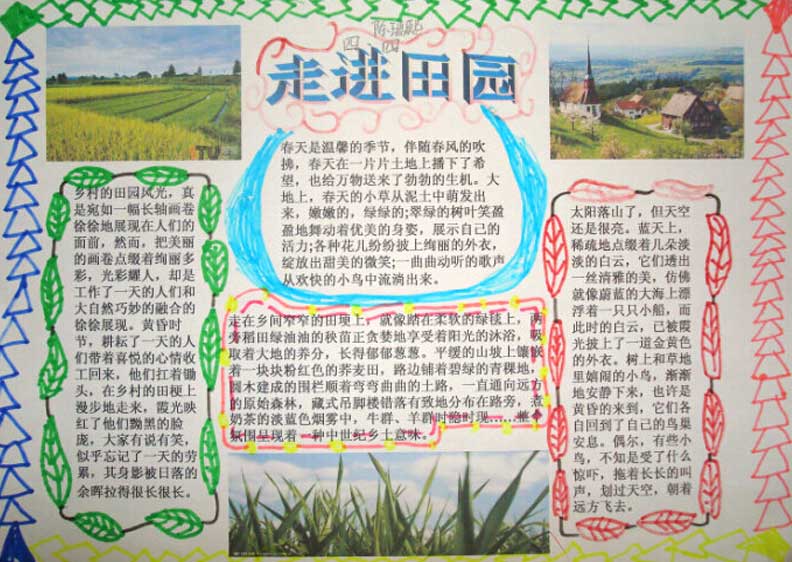 四 四
走进田园
春天是温馨的季节，伴随春风的吹
拂，春天在一片片土地上播下了希
望，也给万物送来了勃勃的生机。大
地上，春天的小草从泥土中萌发出
来，嫩嫩的，绿绿的;翠绿的树叶笑盈
盈地舞动着优美的身姿，展示自己的
活力;各种花儿纷纷披上绚丽的外衣，
绽放出甜美的微笑;一曲曲动听的歌声
从欢快的小鸟中流淌出来。
乡村的田园风光，真
是宛如一幅长轴画卷
徐徐地展现在人们的
面前，然而，把美丽
的画卷点缀着绚丽多
彩，光彩耀人，却是
工作了一天的人们和
大自然巧妙的融合的
徐徐展现。黄昏时
节，耕耘了一天的人
们带着喜悦的心情收
工回来，他们扛着锄
头，在乡村的田梗上
漫步地走来，霞光映
红了他们黝黑的脸
庞，大家有说有笑，
似乎忘记了一天的劳
累，其身影被日落的
余晖拉得很长很长。
走在乡间窄窄的田坝上，就像踏在柔软的绿毯上，两
旁稻田绿油油的秧苗正贪婪地享受着阳光的沐浴，吸
取着大地的养分，长得郁郁葱葱。平缓的山坡上镶嵌
着一块块粉红色的荞麦田，路边铺着碧绿的青稞地，
圆木建成的围栏顺着弯弯曲曲的土路，一直通向远方
的原始森林，藏式吊脚楼错落有致地分布在路旁，煮
奶茶的淡蓝色烟雾中，牛群、羊群时隐时现……整个
氛围呈现着一种中世纪乡土意味。
太阳落山了，但天空
还是很亮。蓝天上，
稀疏地点缀着几朵淡
淡的白云，它们透出
一丝清雅的美，仿佛
就像蔚蓝的大海上漂
浮着一只只小船，而
此时的白云，已被霞
光披上了一道金黄色
的外衣。树上和草地
里嬉闹的小鸟，渐渐
地安静下来，也许是
黄昏的来到，它们各
自回到了自己的鸟巢
安息。偶尔，有些小
鸟，不知是受了什么
惊吓，拖着长长的叫
声，划过天空，朝着
远方飞去。